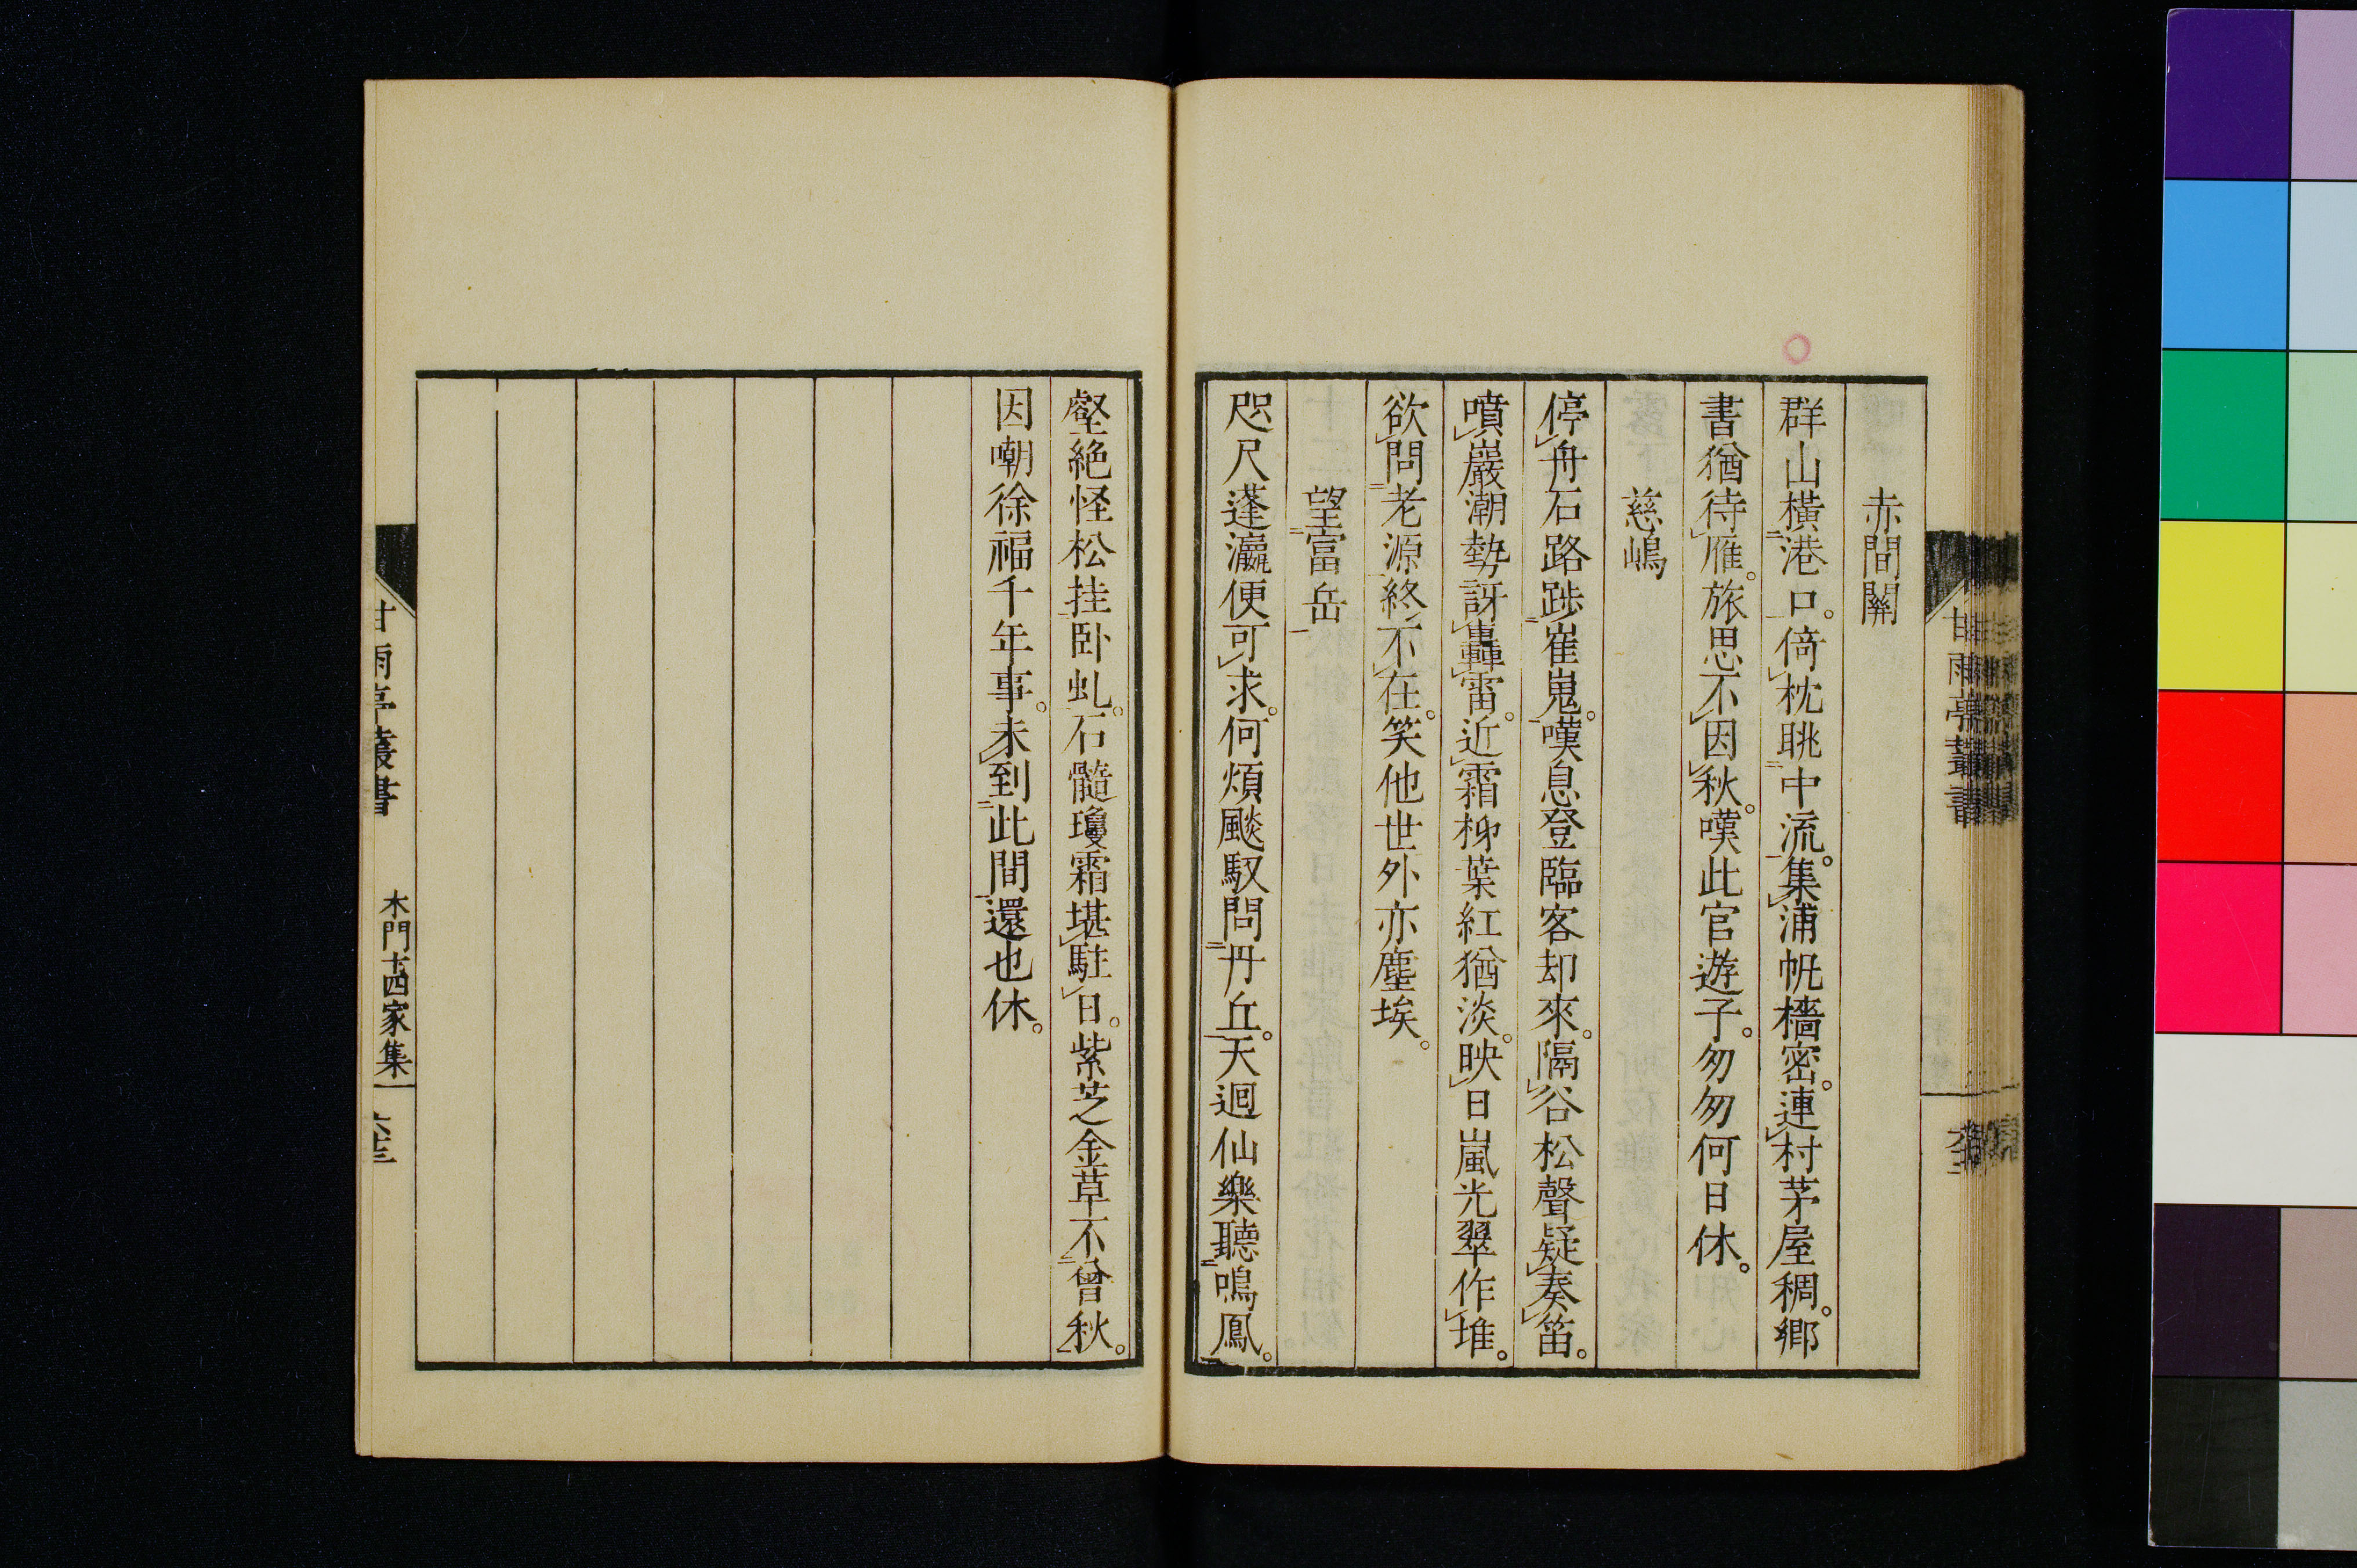 赤間關
群山橫港口。倚枕眺中流。集浦帆檣密。連村茅屋稠。鄉
書猶待雁。旅思不因秋。嘆此官遊子。匆匆何日休。
慈嶋
停舟石路踄崔嵬。嘆息登臨客却來。隔谷松聲疑奏笛。
噴巖潮勢訝轟雷。近霜柳葉紅猶淡。映日嵐光翠作堆。
欲問老源終不在。笑他世外亦塵埃。
望富岳
咫尺蓬瀛便可求。何煩飈馭問丹丘。天迴仙樂聽鳴鳳。
壑絕怪松挂臥虬。石髓瓊霜堪駐日。紫芝金草不曾秋。
因嘲徐福千年事。未到此間還也休。
甘雨亭叢書
木門十四家集
甘雨亭叢書